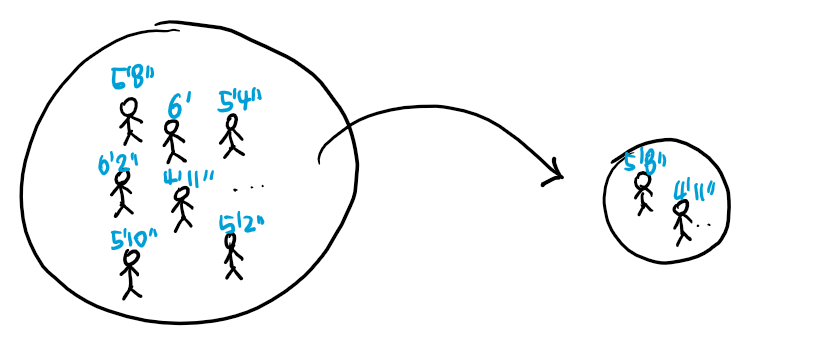 5'8"
6'
5'4"
6'2"
4'11"
...
5'10"
5'2"
5'8"
4'11"
..